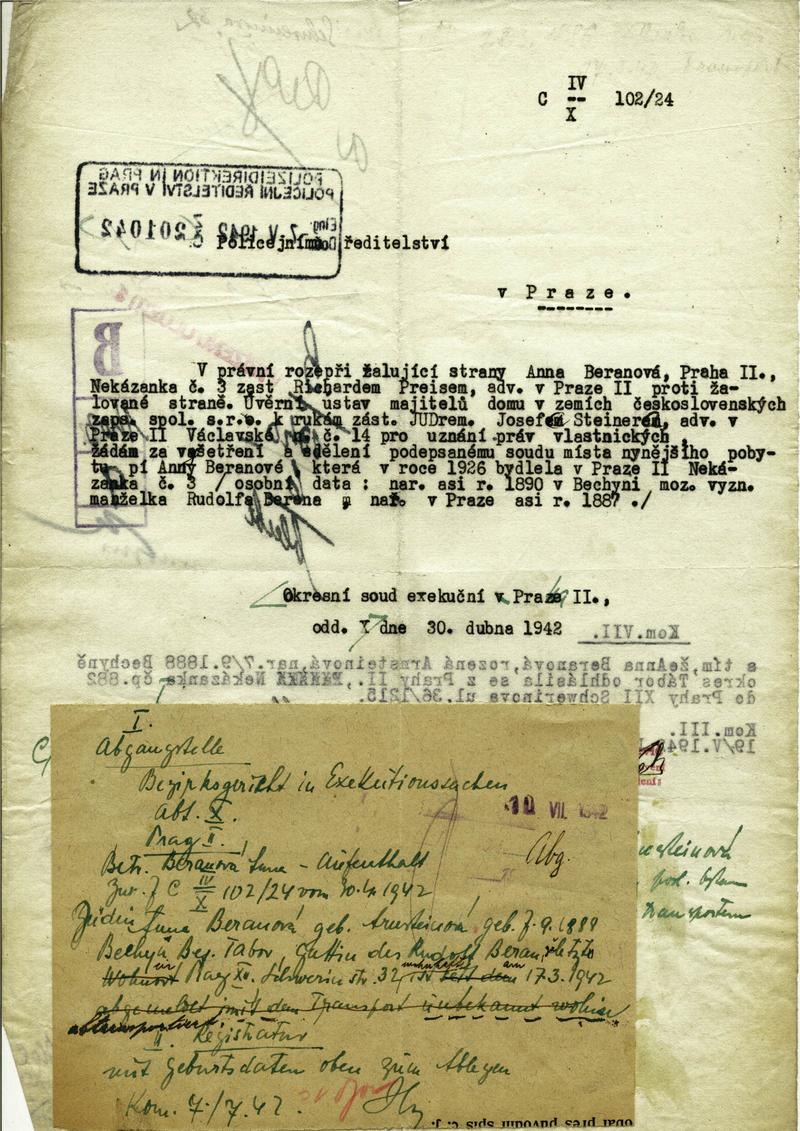 C IV/X 102/24
POLIZEIDIREKTION IN PRAG
POLICEJNÍ ŘEDITELSTVÍ V PRAZE
Eing.
Došlo 7. V. 1942 Č 201042
Policejnímu ředitelství
v Praze.
B
V právní rozepři žalující strany Anna Beranová, Praha II.,
Nekázanka č. 3 zast Richardem Preisem, adv. v Praze II proti ža-
lované straně. Úvěrní ústav majitelů domu v zemích československých
zaps. spol. s.r.o. k rukám zást. JUDrem. Josefem Steinerem, adv. v
Praze II Václavské n. č. 14 pro uznání práv vlastnických ,
žádám za vyšetření a sdělení podepsanému soudu místa nynějšího poby-
tu pí Anny Beranové , která v roce 1926 bydlela v Praze II Neká-
zanka č. 3 / osobní data : nar. asi r. 1890 v Bechyni moz. vyzn.
manželka Rudolfa Berana , nar. v Praze asi r. 1887 ./
Okresní soud exekuční v Praze II.,
odd. X dne 30. dubna 1942
Kom.VII.
s tím, že Anna Beranová, rozená Arnsteinová, nar. 7/9.1888 Bechyně
okres Tábor odhlásila se z Prahy II., Nekázanka čp. 882
do Prahy XII Schwerinova ul. 36/1215.
Kom. III.
19/V.1942
I.
Abgangstelle
Bezirksgericht in Exekutionssachen
Abt. X.
Prag II.
10 VII. 1942
Abg.
Betr. Beranová Anna - Aufenthalt
Zur. Z C IV/X 102/24 vom 30.4.1942
Jüdin Anna Beranová geb. Arnsteinová, geb. 7.9.1888
Bechyň Bez. Tabor, Gattin des Rudolf Beran,
Wohnort Prag XII. Schwerin str. 32, ist seit dem am 17.3.1942
abgemeldet mit dem Transport unbekannt wohin
abtransportiert.
II. Registratur
mit Geburtsdaten oben zum Ablegen
Kom. 7./7.42.
transportem
obal přes původní spis č. j.